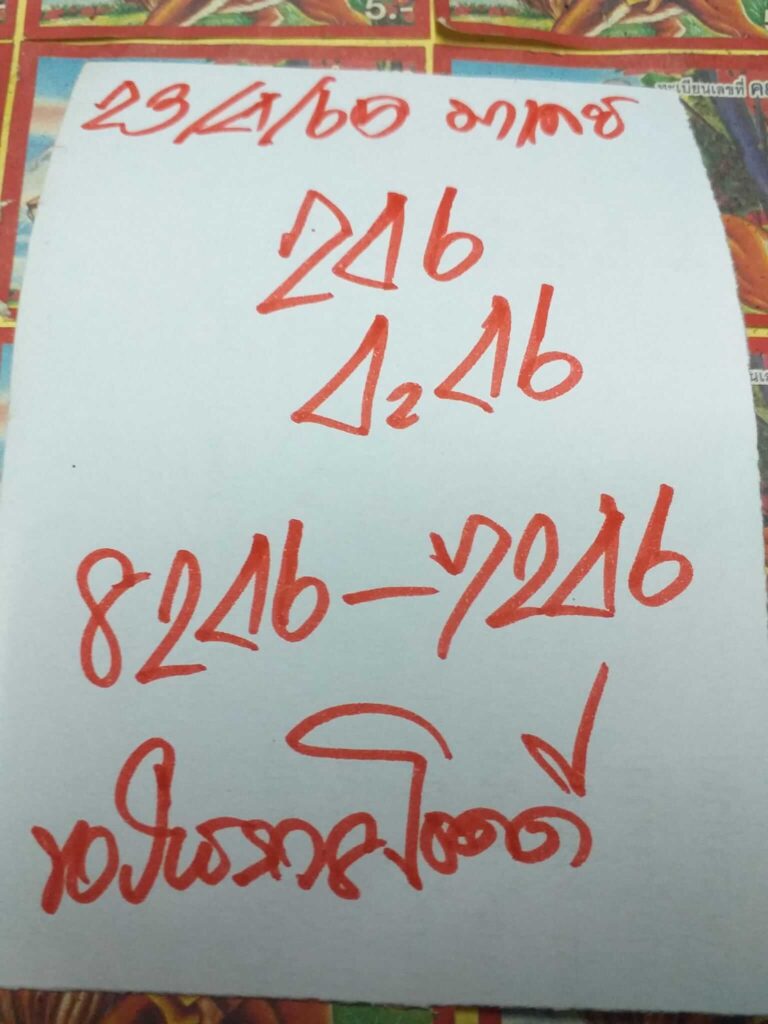 5.-
ทะเบียนเลขที่
23/4/65 มาเลย์
246
4246
8246-7246
ขอให้รวยโชคดี